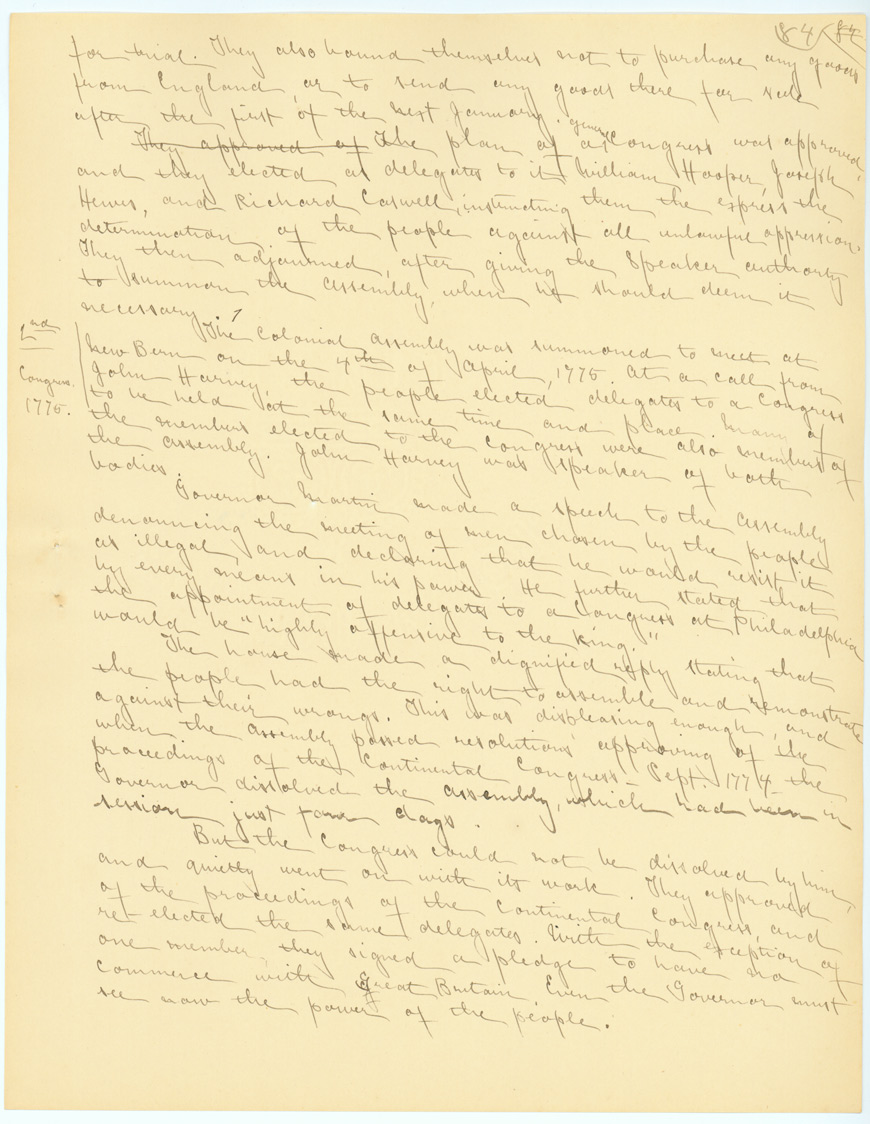 84 84
for trial. They also bound themselves not to purchase any goods
from England, or to send any goods there for sale
after the first of the next January.
They approved of The plan of a general Congress was approved,
and they elected as delegates to it William Hooper, Joseph
Hewes, and Richard Caswell, instructing them the express the
determination of the people against all unlawful oppression.
They then adjourned, after giving the Speaker authority
to summon the Assembly, when he should deem it
necessary. 1
The Colonial Assembly was summoned to meet at
2nd Congress. 1775.
New Bern on the 4th of April, 1775. At a call from
John Harvey, the people elected delegates to a Congress
to be held at the same time and place. Many of
the members elected to the Congress were also members of
the Assembly. John Harvey was speaker of both
bodies.
Governor Martin made a speech to the Assembly
denouncing the meeting of men chosen by the people
as illegal, and declaring that he would resist it
by every means in his power. He further stated that
the appointment of delegates to a Congress at Philadelphia
would be "highly offensive to the King."
The house made a dignified reply stating that
the people had the right to assemble and remonstrate
against their wrongs. This was displeasing enough, and
when the Assembly passed resolutions approving of the
proceedings of the Continental Congress - Sept. 1774 - the
Governor dissolved the assembly, which had been in
session just four days.
But the Congress could not be dissolved by him,
and quietly went on with its work. They approved
of the proceedings of the Continental Congress, and
re-elected the same delegates. With the exception of
one member, they signed a pledge to have no
commerce with Great Britain. Even the Governor must
see now the power of the people.